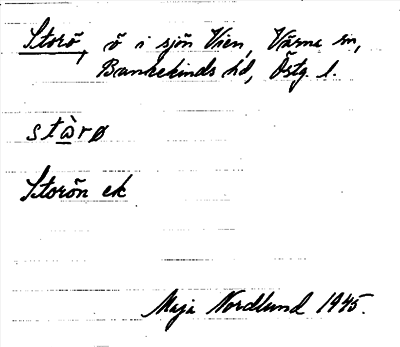 Storö, ö i sjön Vien, Värna sn,
Bankekinds hd, Östg. l.
stàrø
Storön ek
Maja Nordlund 1945.